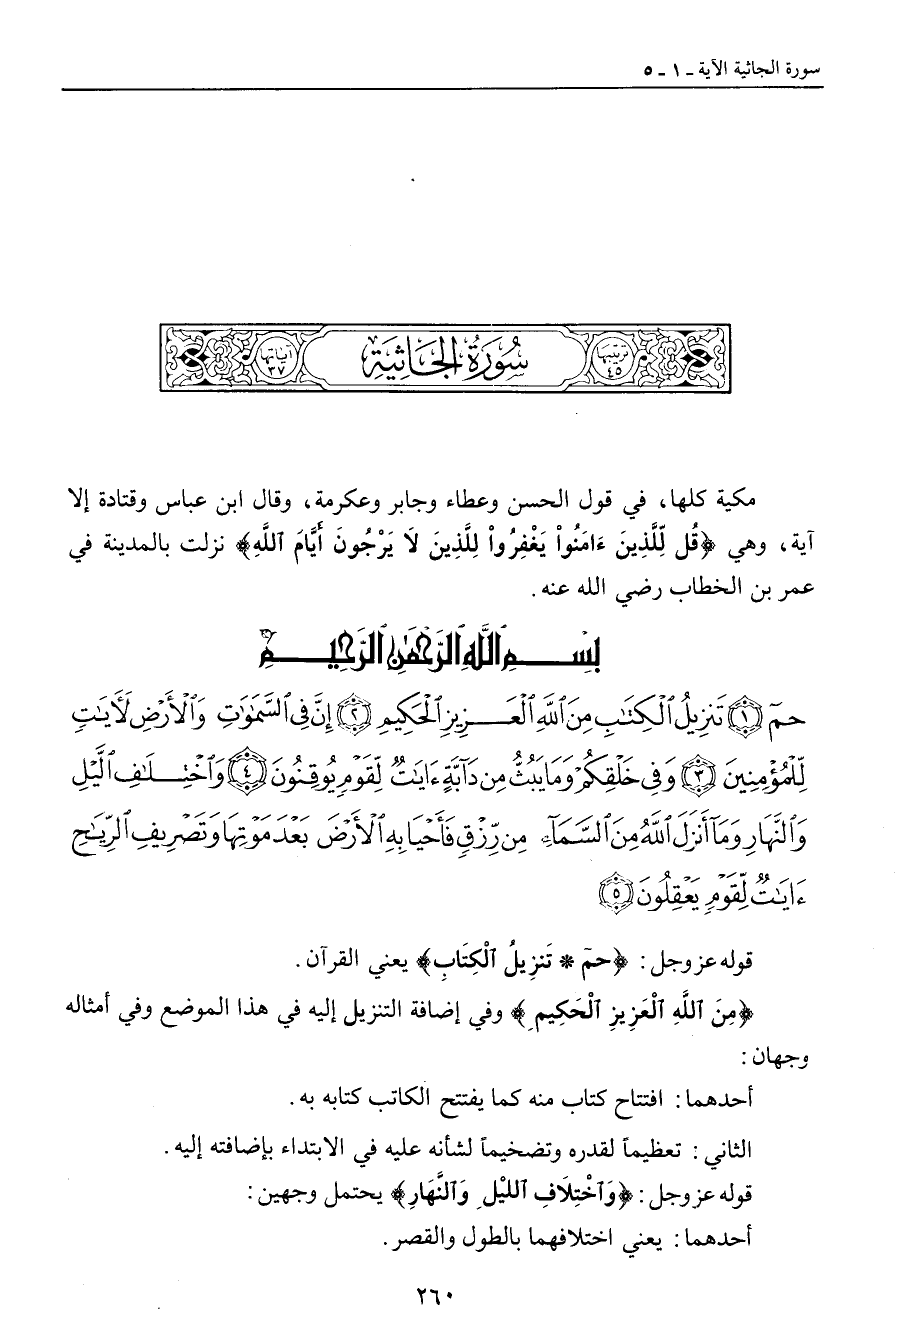 سورة الجاثية الآية ـ ١ ـ ٥
ترتيبها ٤٥ سُورَةُ الجَاثِيَةِ آياتها ٣٧
مكية كلها، في قول الحسن وعطاء وجابر وعكرمة، وقال ابن عباس وقتادة إلا
آية، وهي ﴿قُل لِّلَّذِينَ ءَامَنُواْ يَغْفِرُواْ لِلَّذِينَ لَا يَرْجُونَ أَيَّامَ ٱللَّهِ﴾ نزلت بالمدينة في
عمر بن الخطاب رضي الله عنه.
بِسْمِ ٱللَّهِ ٱلرَّحْمَٰنِ ٱلرَّحِيمِ
حمٓ ﴿١﴾ تَنزِيلُ ٱلْكِتَٰبِ مِنَ ٱللَّهِ ٱلْعَزِيزِ ٱلْحَكِيمِ ﴿٢﴾ إِنَّ فِى ٱلسَّمَٰوَٰتِ وَٱلْأَرْضِ لَءَايَٰتٍ
لِّلْمُؤْمِنِينَ ﴿٣﴾ وَفِى خَلْقِكُمْ وَمَا يَبُثُّ مِن دَآبَّةٍ ءَايَٰتٌ لِّقَوْمٍ يُوقِنُونَ ﴿٤﴾ وَٱخْتِلَٰفِ ٱلَّيْلِ
وَٱلنَّهَارِ وَمَآ أَنزَلَ ٱللَّهُ مِنَ ٱلسَّمَآءِ مِن رِّزْقٍ فَأَحْيَا بِهِ ٱلْأَرْضَ بَعْدَ مَوْتِهَا وَتَصْرِيفِ ٱلرِّيَٰحِ
ءَايَٰتٌ لِّقَوْمٍ يَعْقِلُونَ ﴿٥﴾
قوله عز وجل: ﴿حمٓ * تَنزِيلُ ٱلْكِتَابِ﴾ يعني القرآن.
﴿مِنَ ٱللَّهِ ٱلْعَزِيزِ ٱلْحَكِيمِ﴾ وفي إضافة التنزيل إليه في هذا الموضع وفي أمثاله
وجهان:
أحدهما: افتتاح كتاب منه كما يفتتح الكاتب كتابه به.
الثاني: تعظيماً لقدره وتضخيماً لشأنه عليه في الابتداء بإضافته إليه.
قوله عز وجل: ﴿وَٱخْتِلَافِ ٱلليْلِ وَٱلنَّهَارِ﴾ يحتمل وجهين:
أحدهما: يعني اختلافهما بالطول والقصر.
٢٦٠